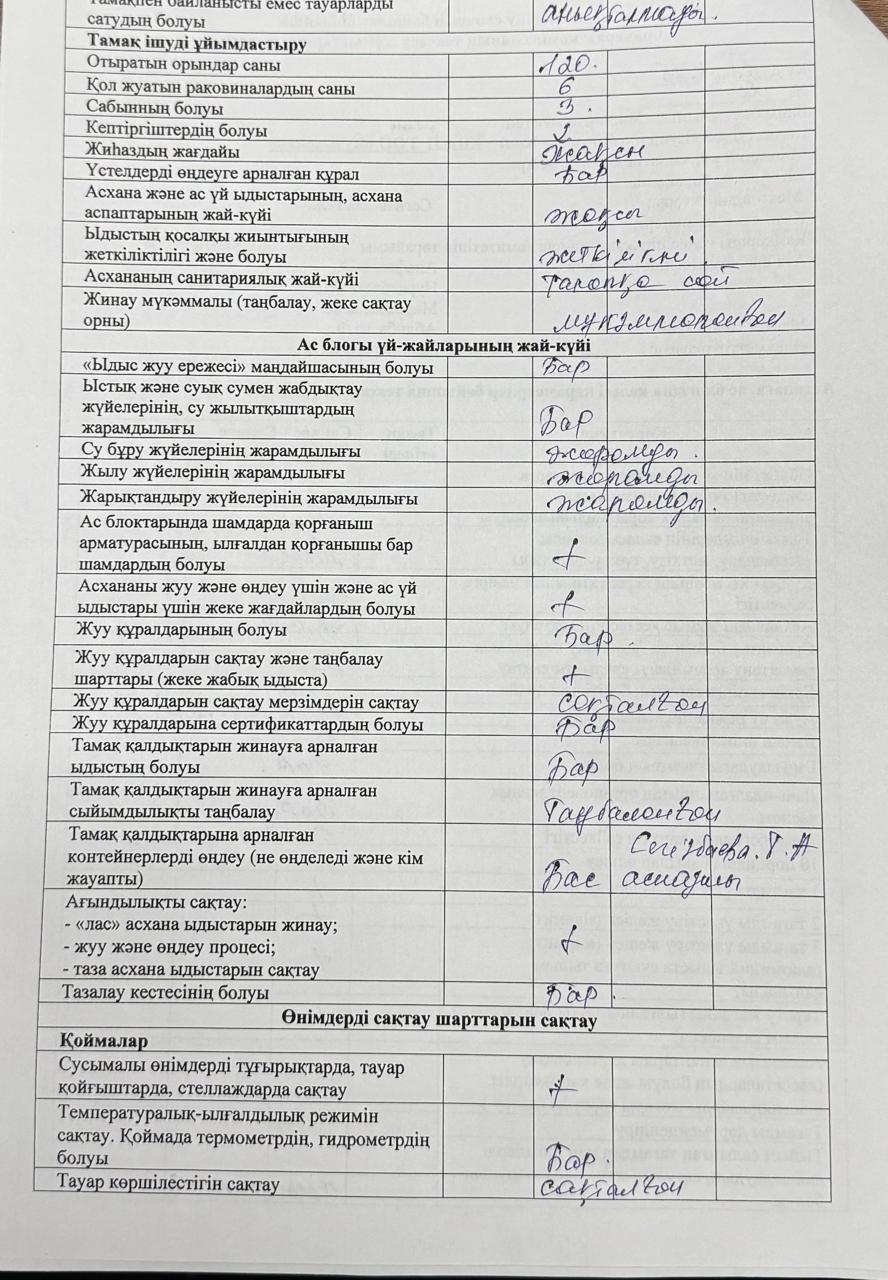 Тамақпен байланысты емес тауарларды
сатудың болуы анықталмады.
Тамақ ішуді ұйымдастыру
Отыратын орындар саны 120.
Қол жуатын раковиналардың саны 6
Сабынның болуы 3.
Кептіргіштердің болуы 2
Жиһаздың жағдайы Жақсы
Үстелдерді өңдеуге арналған құрал Бар
Асхана және ас үй ыдыстарының, асхана
аспаптарының жай-күйі жақсы
Ыдыстың қосалқы жиынтығының
жеткіліктілігі және болуы
Асхананың санитариялық жай-күйі талапқа сай
Жинау мүкәммалы (таңбалау, жеке сақтау
орны)
Ас блогы үй-жайларының жай-күйі
«Ыдыс жуу ережесі» маңдайшасының болуы Бар
Ыстық және суық сумен жабдықтау
жүйелерінің, су жылытқыштардың
жарамдылығы Бар
Су бұру жүйелерінің жарамдылығы жарамды.
Жылу жүйелерінің жарамдылығы жарамды
Жарықтандыру жүйелерінің жарамдылығы жарамды.
Ас блоктарында шамдарда қорғаныш
арматурасының, ылғалдан қорғанышы бар
шамдардың болуы +
Асхананы жуу және өңдеу үшін және ас үй
ыдыстары үшін жеке жағдайлардың болуы +
Жуу құралдарының болуы Бар.
Жуу құралдарын сақтау және таңбалау
шарттары (жеке жабық ыдыста) +
Жуу құралдарын сақтау мерзімдерін сақтау сақталған
Жуу құралдарына сертификаттардың болуы Бар
Тамақ қалдықтарын жинауға арналған
ыдыстың болуы Бар
Тамақ қалдықтарын жинауға арналған
сыйымдылықты таңбалау Таңбаланған
Тамақ қалдықтарына арналған
контейнерлерді өңдеу (не өңделеді және кім Сегізбаева. Т. А
жауапты) Бас аспазшы
Ағындылықты сақтау:
- «лас» асхана ыдыстарын жинау;
- жуу және өңдеу процесі; +
- таза асхана ыдыстарын сақтау
Тазалау кестесінің болуы Бар.
Өнімдерді сақтау шарттарын сақтау
Қоймалар
Сусымалы өнімдерді тұғырықтарда, тауар
қойғыштарда, стеллаждарда сақтау +
Температуралық-ылғалдылық режимін
сақтау. Қоймада термометрдің, гидрометрдің
болуы Бар.
Тауар көршілестігін сақтау сақталған